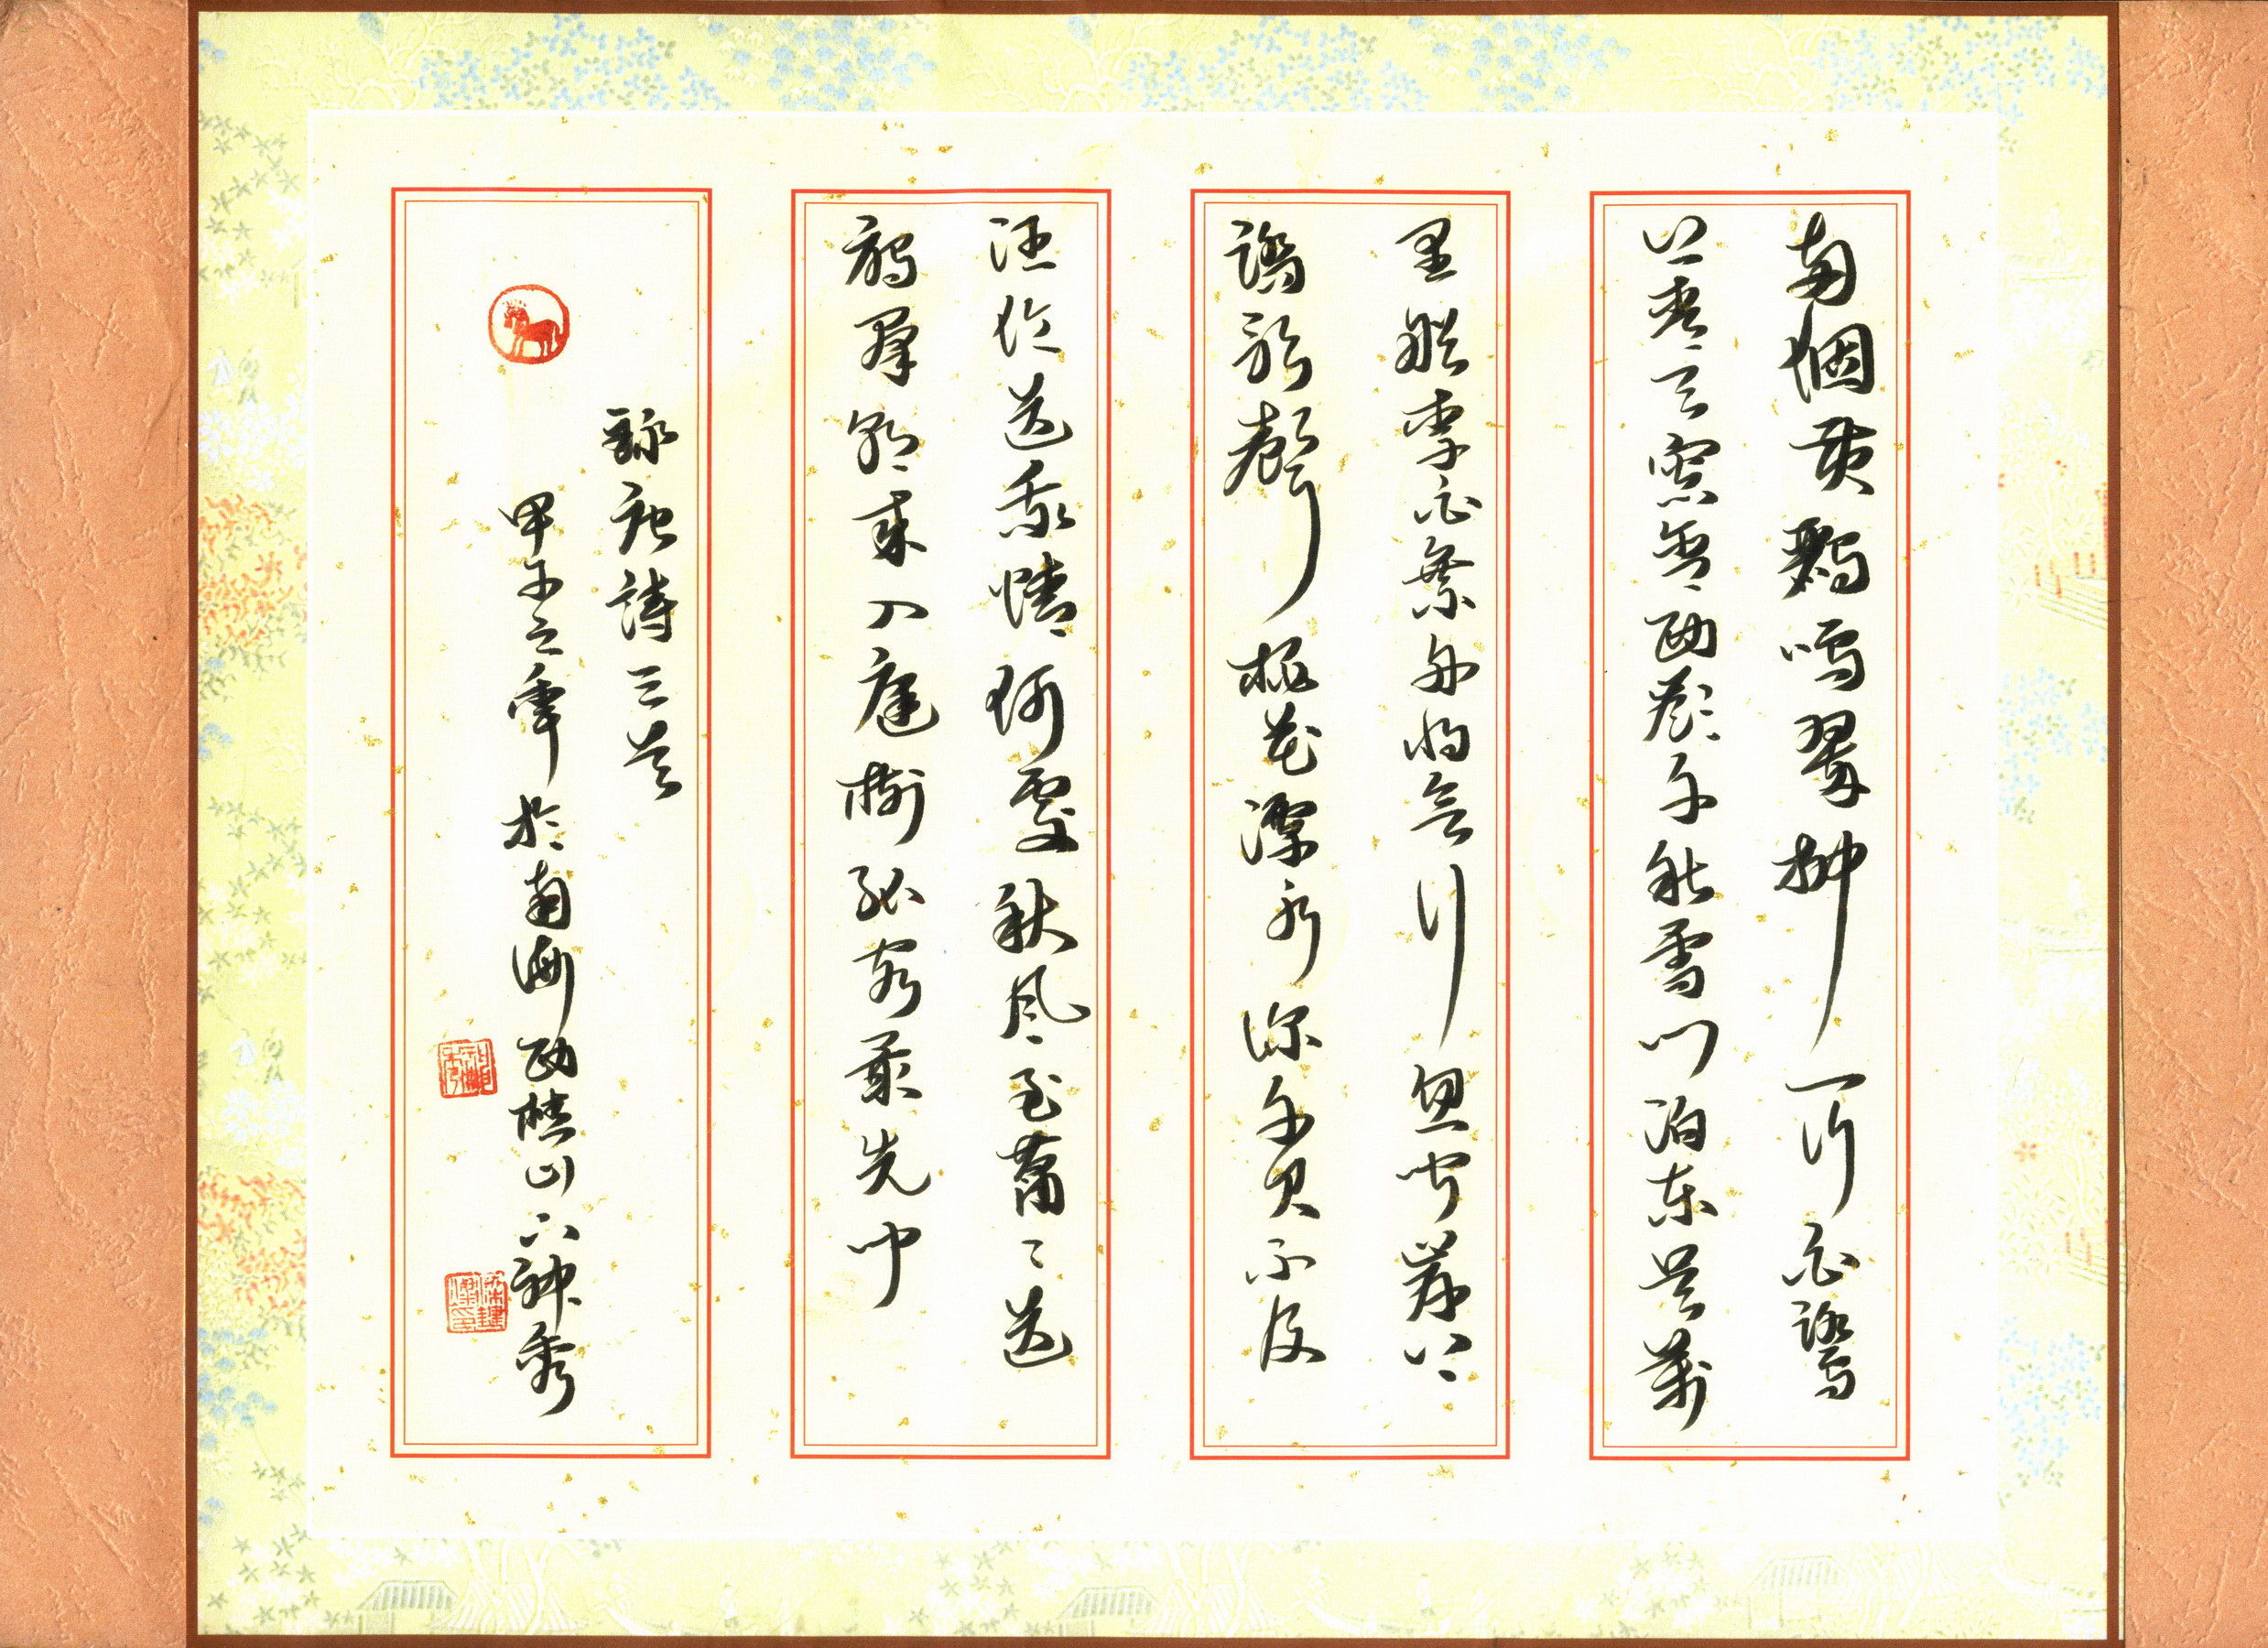 兩個黃鸝鳴翠柳一行白鷺
上青天窗含西嶺千秋雪門泊東吳萬
里船李白乘舟將欲行忽聞岸上
踏歌聲桃花潭水深千尺不及
汪倫送我情何處秋風至蕭〻送
鴈羣朝來入庭樹孤客最先聞
錄唐詩三首
甲午之年於南海西樵山下神秀